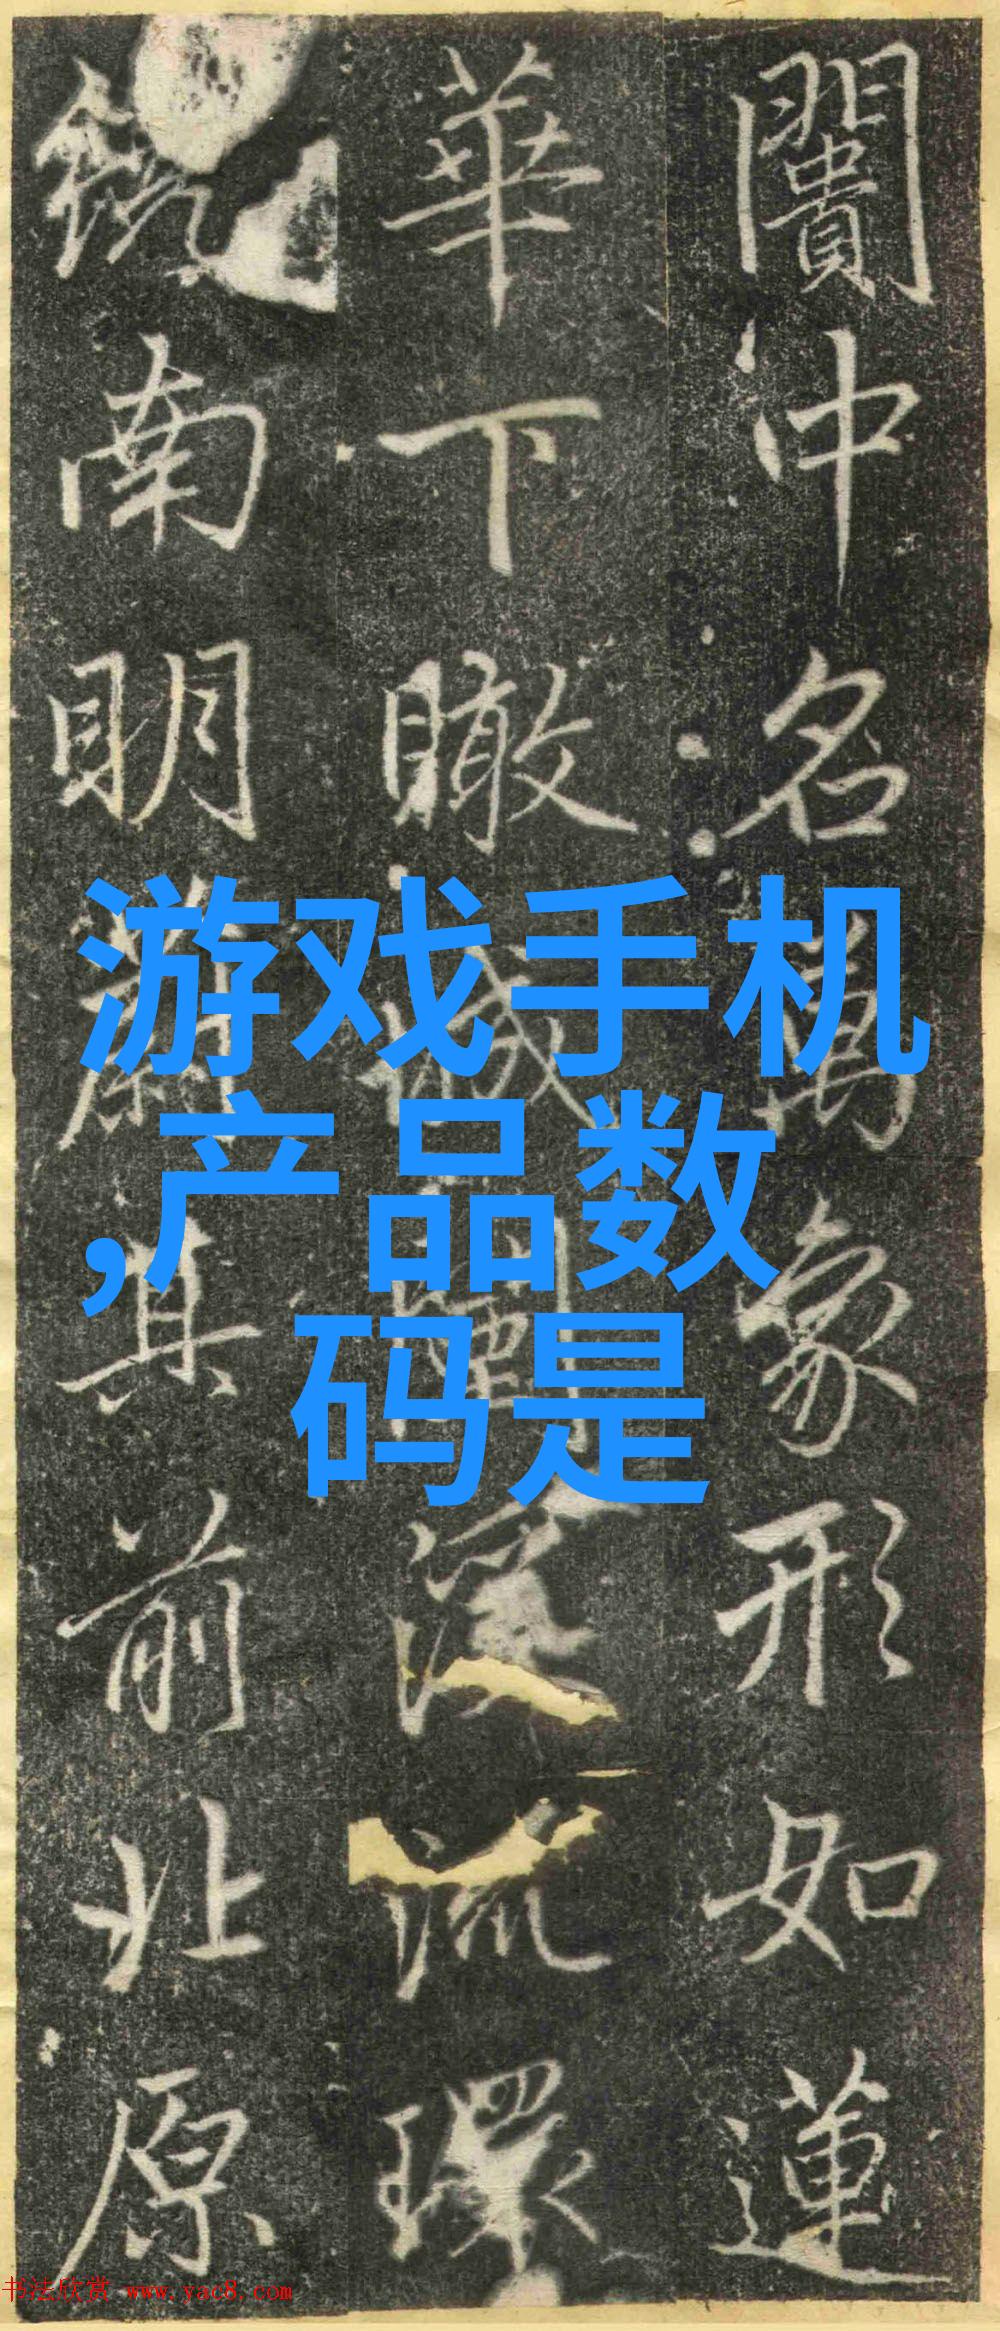 闠中名萬象形如蓮
華下瞰城闉深流環
鏡南明蔚其前北原
游戏手机
,产品数
码是
书法欣赏 www.yac8.com